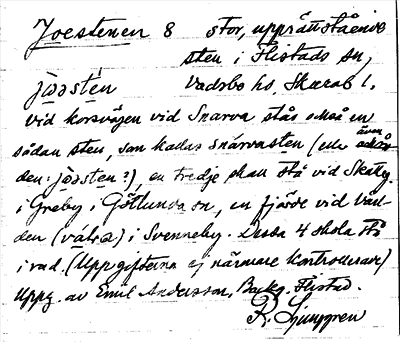 Joestenen 8 stor, upprättstående
sten i Flistads sn,
jo̱əstén Vadsbo hd, Skarab l.
vid korsvägen vid Snarva står också en
sådan sten, som kallas snárvasten (eller även
den: jo̱əsten?), en tredje skall stå vid
i Greby i Götlunda sn, en fjärde vid
den (valra) i Svenneby. Dessa 4 skola stå
i rad. (Uppgifterna ej närmare kontrollerade)
Uppg. av Emil Andersson, Backg. Flistad.
R. Ljunggren